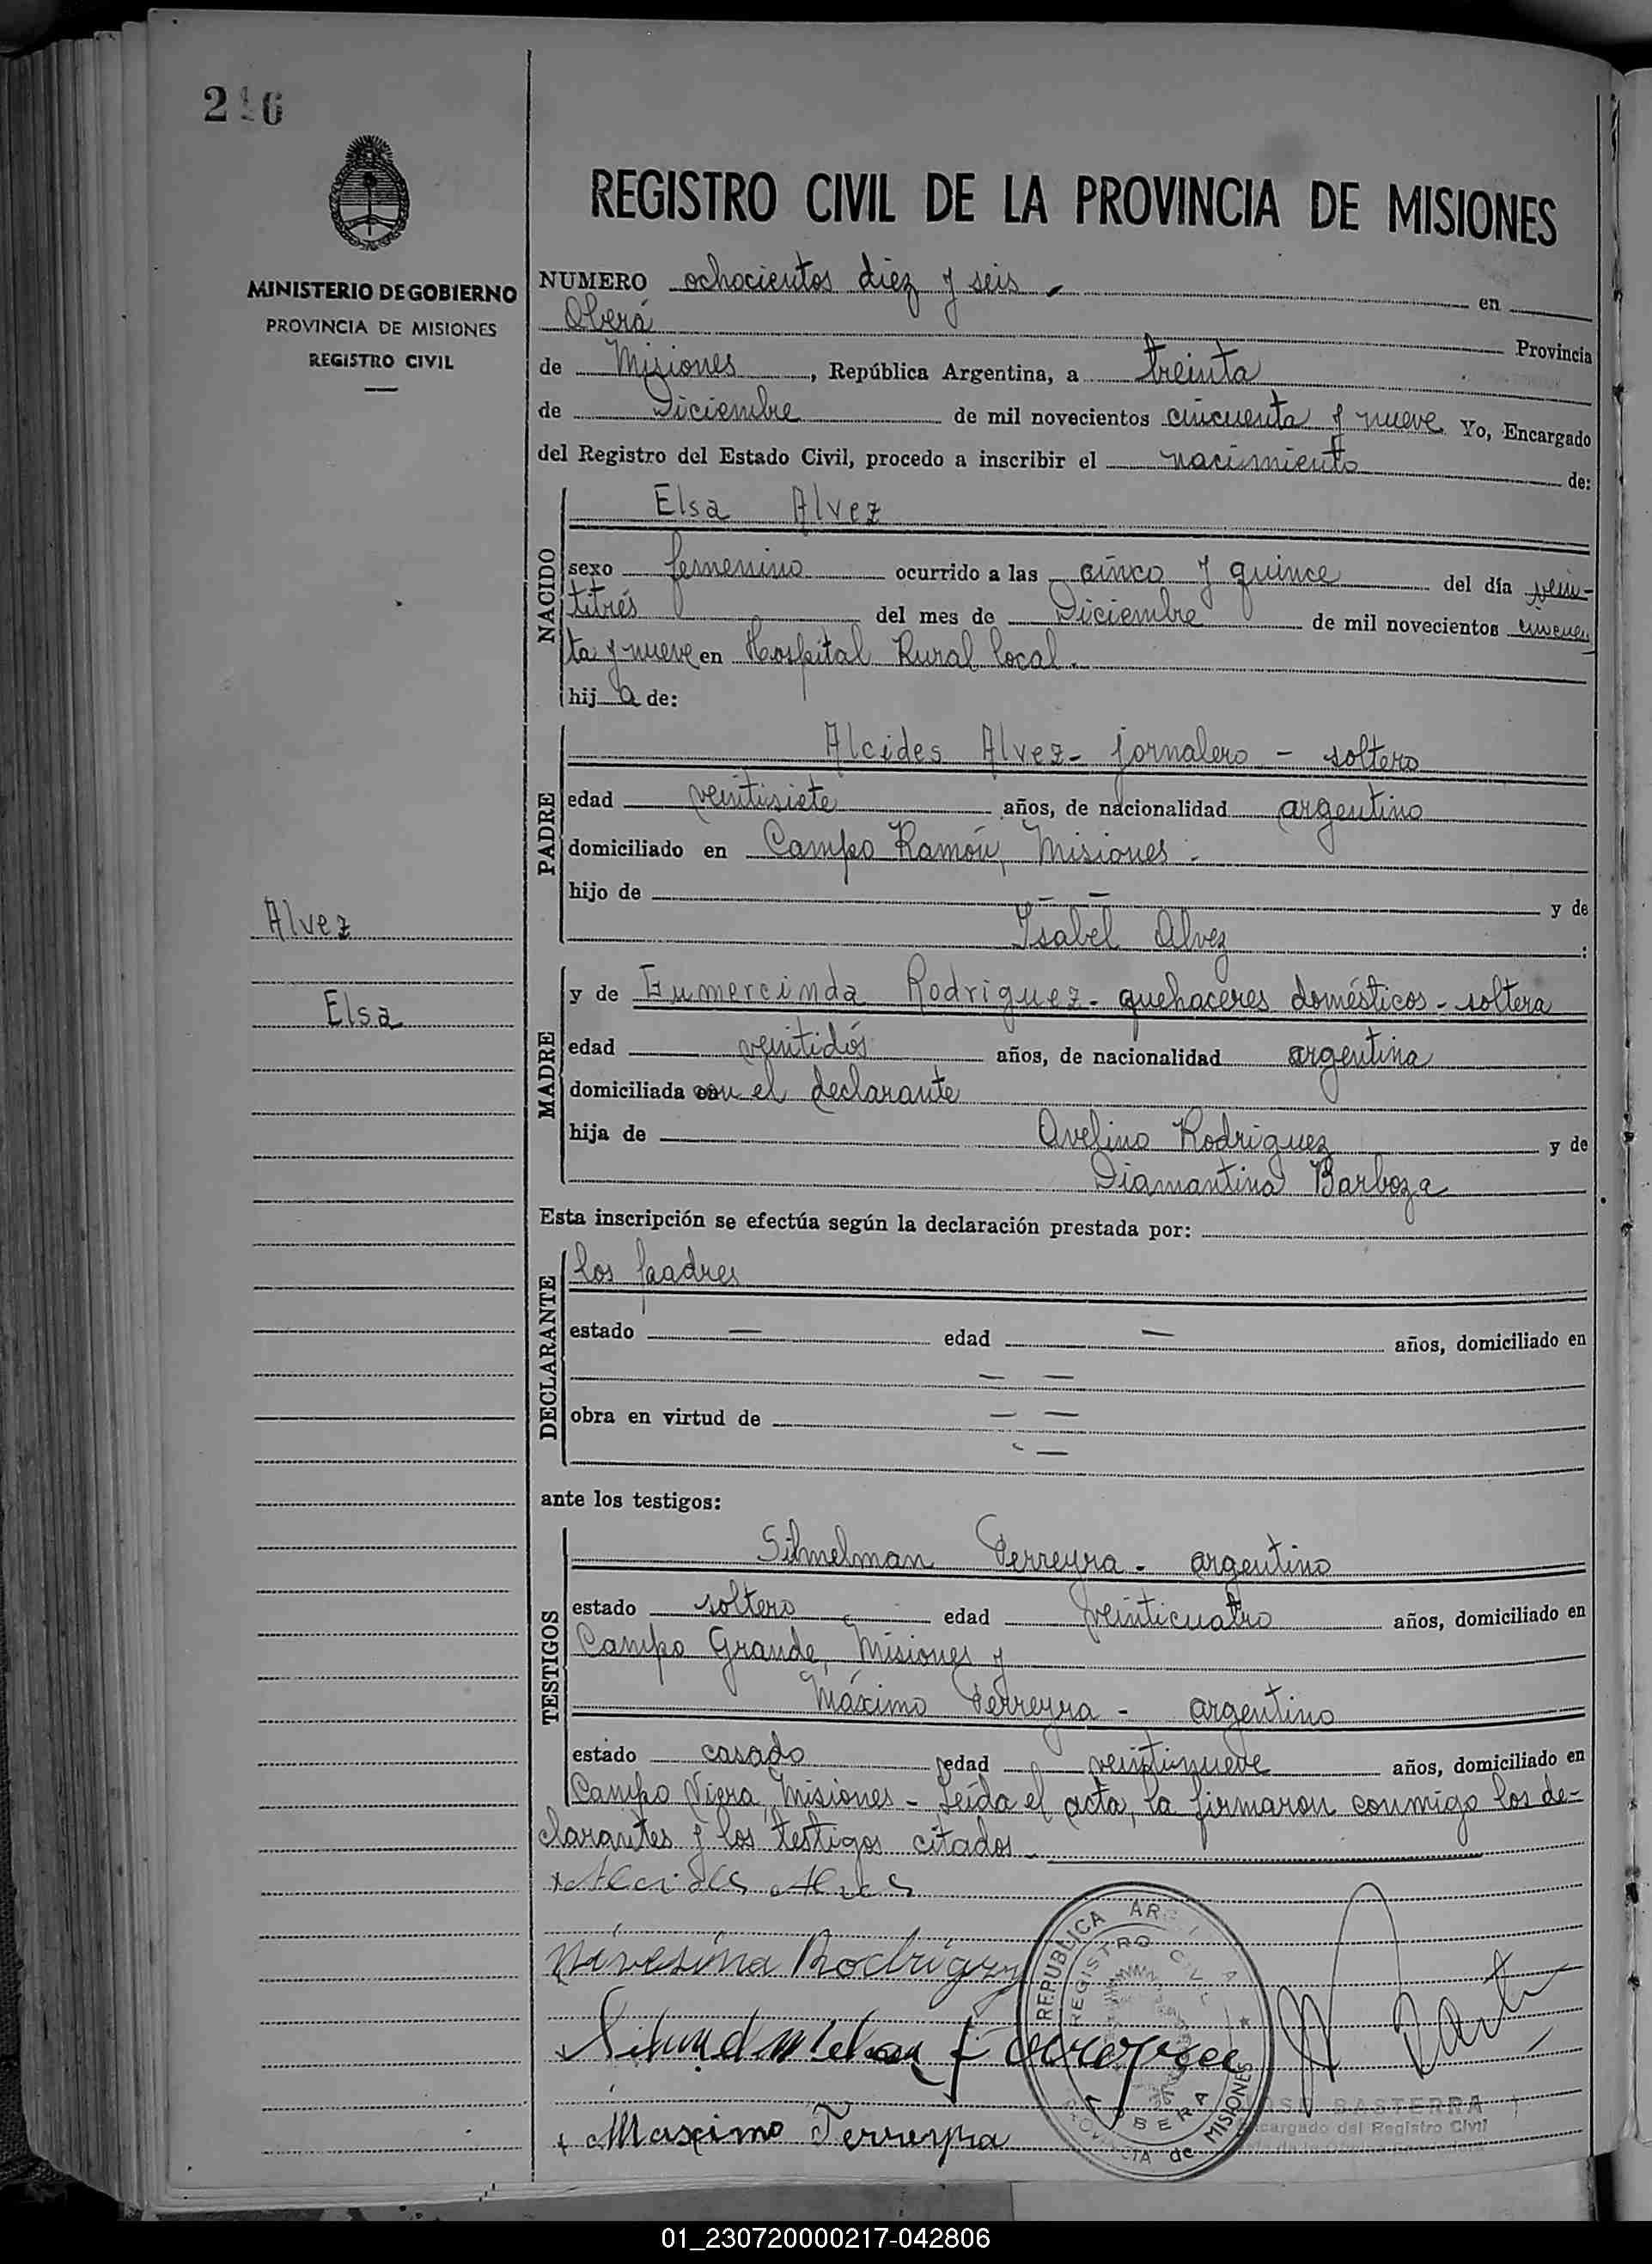 REGISTRO CIVIL DE LA PROVINCIA DE MISIONES
MINISTERIO DE GOBIERNO
PROVINCIA DE MISIONES
REGISTRO CIVIL
NUMERO ochocientos diez y seis - en
Oberá Provincia
de Misiones, República Argentina, a treinta
de Diciembre de mil novecientos cincuenta y nueve Yo, Encargado
del Registro del Estado Civil, procedo a inscribir el nacimiento de:
NACIDO
Elsa Alvez
sexo femenino ocurrido a las cinco y quince del día vein-
titrés del mes de Diciembre de mil novecientos cincuen
ta y nueve en Hospital Rural local.
hij a de:
PADRE
Alcides Alvez - jornalero - soltero
edad veintisiete años, de nacionalidad argentino
domiciliado en Campo Ramón, Misiones.
hijo de — — y de
Isabel Alvez :
Alvez
Elsa
MADRE
y de Eumercinda Rodriguez - quehaceres domésticos - soltera
edad veintidós años, de nacionalidad argentina
domiciliada con el declarante
hija de Avelino Rodriguez y de
Diamantina Barboza
Esta inscripción se efectúa según la declaración prestada por:
DECLARANTE
los padres
estado — edad — años, domiciliado en
— —
obra en virtud de — —
— —
ante los testigos:
TESTIGOS
Silmelman Ferreyra - argentino
estado soltero edad veinticuatro años, domiciliado en
Campo Grande, Misiones y
Máximo Ferreyra - argentino
estado casado edad veintinueve años, domiciliado en
Campo Viera, Misiones - Leída el acta, la firmaron conmigo los de-
clarantes y los testigos citados.
Alcides Alves
Rodriguez
Ferreyra
Maximo Ferreyra
REPUBLICA ARGENTINA
REGISTRO CIVIL
OBERA
PROVINCIA de MISIONES
BASTERRA
Encargado del Registro Civil
01_230720000217-042806